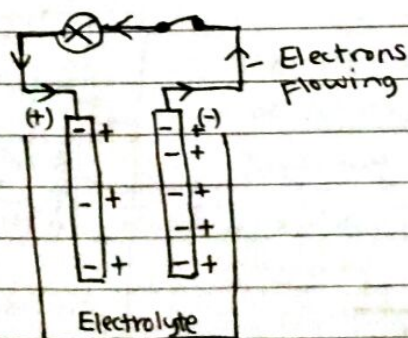 - Electrons
Flowing
(+) - + - + (-)
- +
- + - +
- +
- + - +
Electrolyte